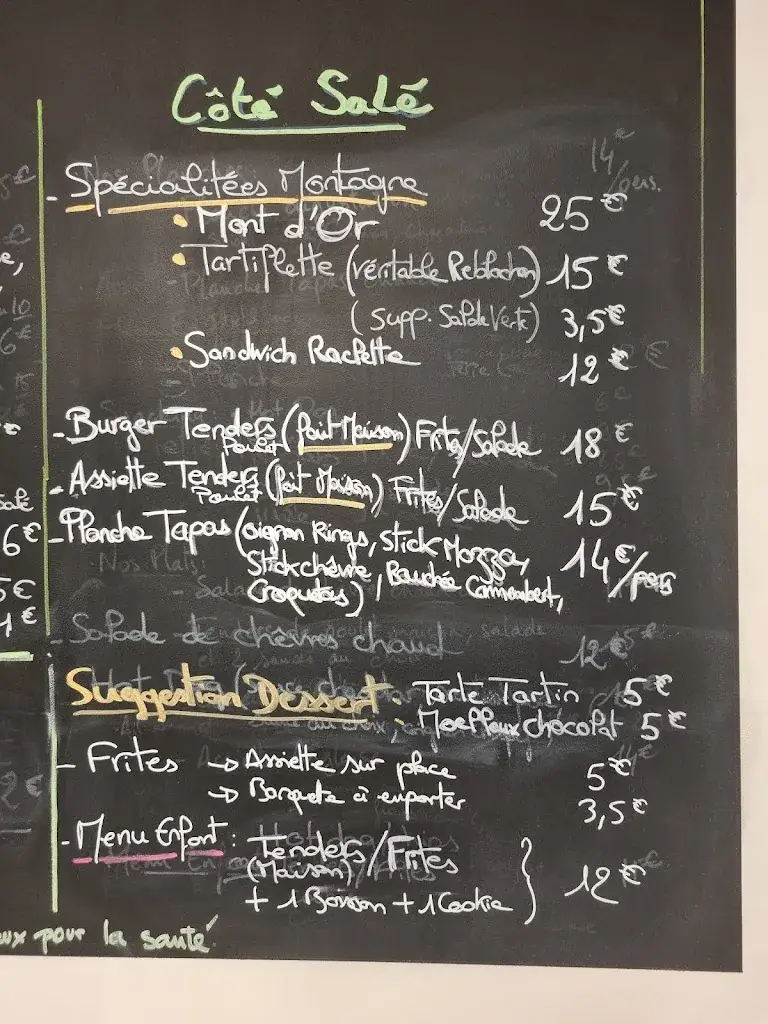 Côté Salé
- Spécialitées Montagne
• Mont d'Or 25€
• Tartiflette (véritable Reblochon) 15€
(supp. Salade Verte) 3,5€
• Sandwich Raclette 12€
- Burger Tenders (fait Maison) Frites/Salade 18€
Poulet
- Assiette Tenders (fait Maison) Frites/Salade 15€
Poulet
- Planche Tapas (oignon Rings, Stick Mozza, 14€/pers
Stick chèvre, Bouchée Camembert,
Croquetas)
- Salade de chèvres chaud 12€
Suggestion Dessert • Tarte Tartin 5€
• Moelleux chocolat 5€
- Frites → Assiette sur place 5€
→ Barquete à emporter 3,5€
- Menu Enfant : Tenders/Frites
(Maison)
+ 1 Boisson + 1 Cookie } 12€
ux pour la santé